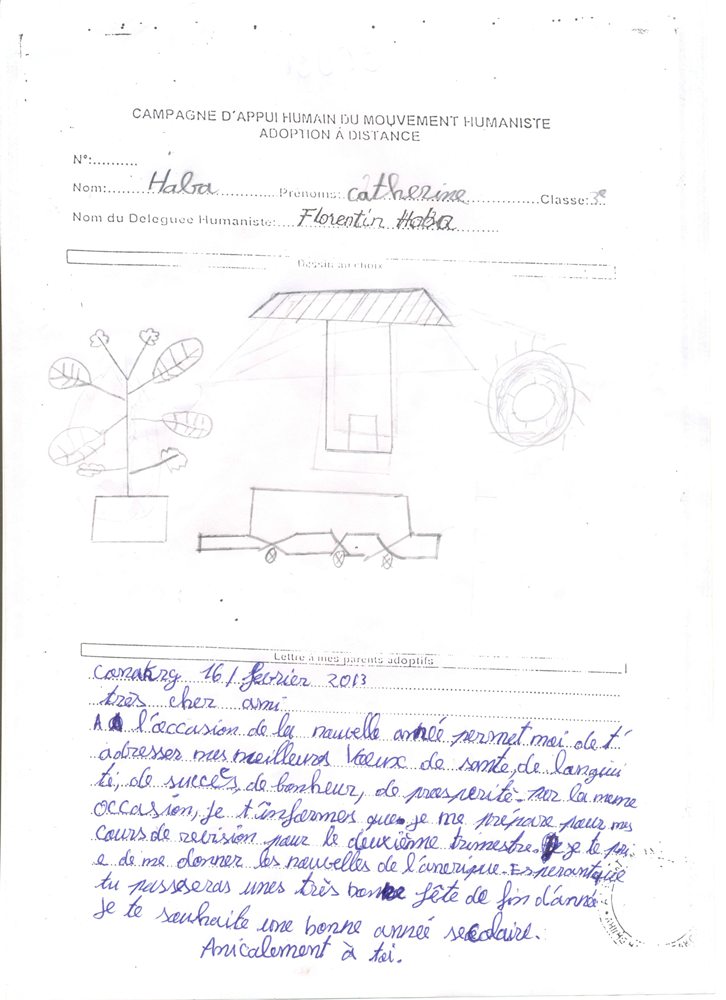 CAMPAGNE D'APPUI HUMAIN DU MOUVEMENT HUMANISTE
ADOPTION À DISTANCE
N°:..........
Nom:......Haba..............Prenoms: catherine..............Classe:3e
Nom du Deleguee Humaniste:.... Florentin Haba
Dessin au choix
Lettre à mes parents adoptifs
Conakry 16/ fevrier 2013
très cher ami
A l'occasion de la nouvelle année permet moi de t'
adresser mes meilleurs Vœux de sante, de langui
té, de succès, de bonheur, de prosperité. Par la meme
occasion, je t'informes que je me prepare pour mes
cours de revision pour le deuxième trimestre. je te pri
e de me donner les nouvelles de l'anerique. Esperant que
tu passeras unes très bonne fête de fin d'année
je te souhaite une bonne année secolaire.
Anicalement à toi.